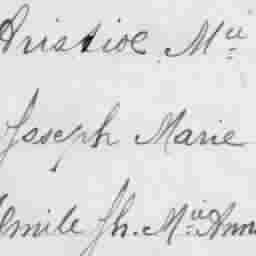 Aristide Mie
Joseph Marie
Emile Jh. Mie Anne